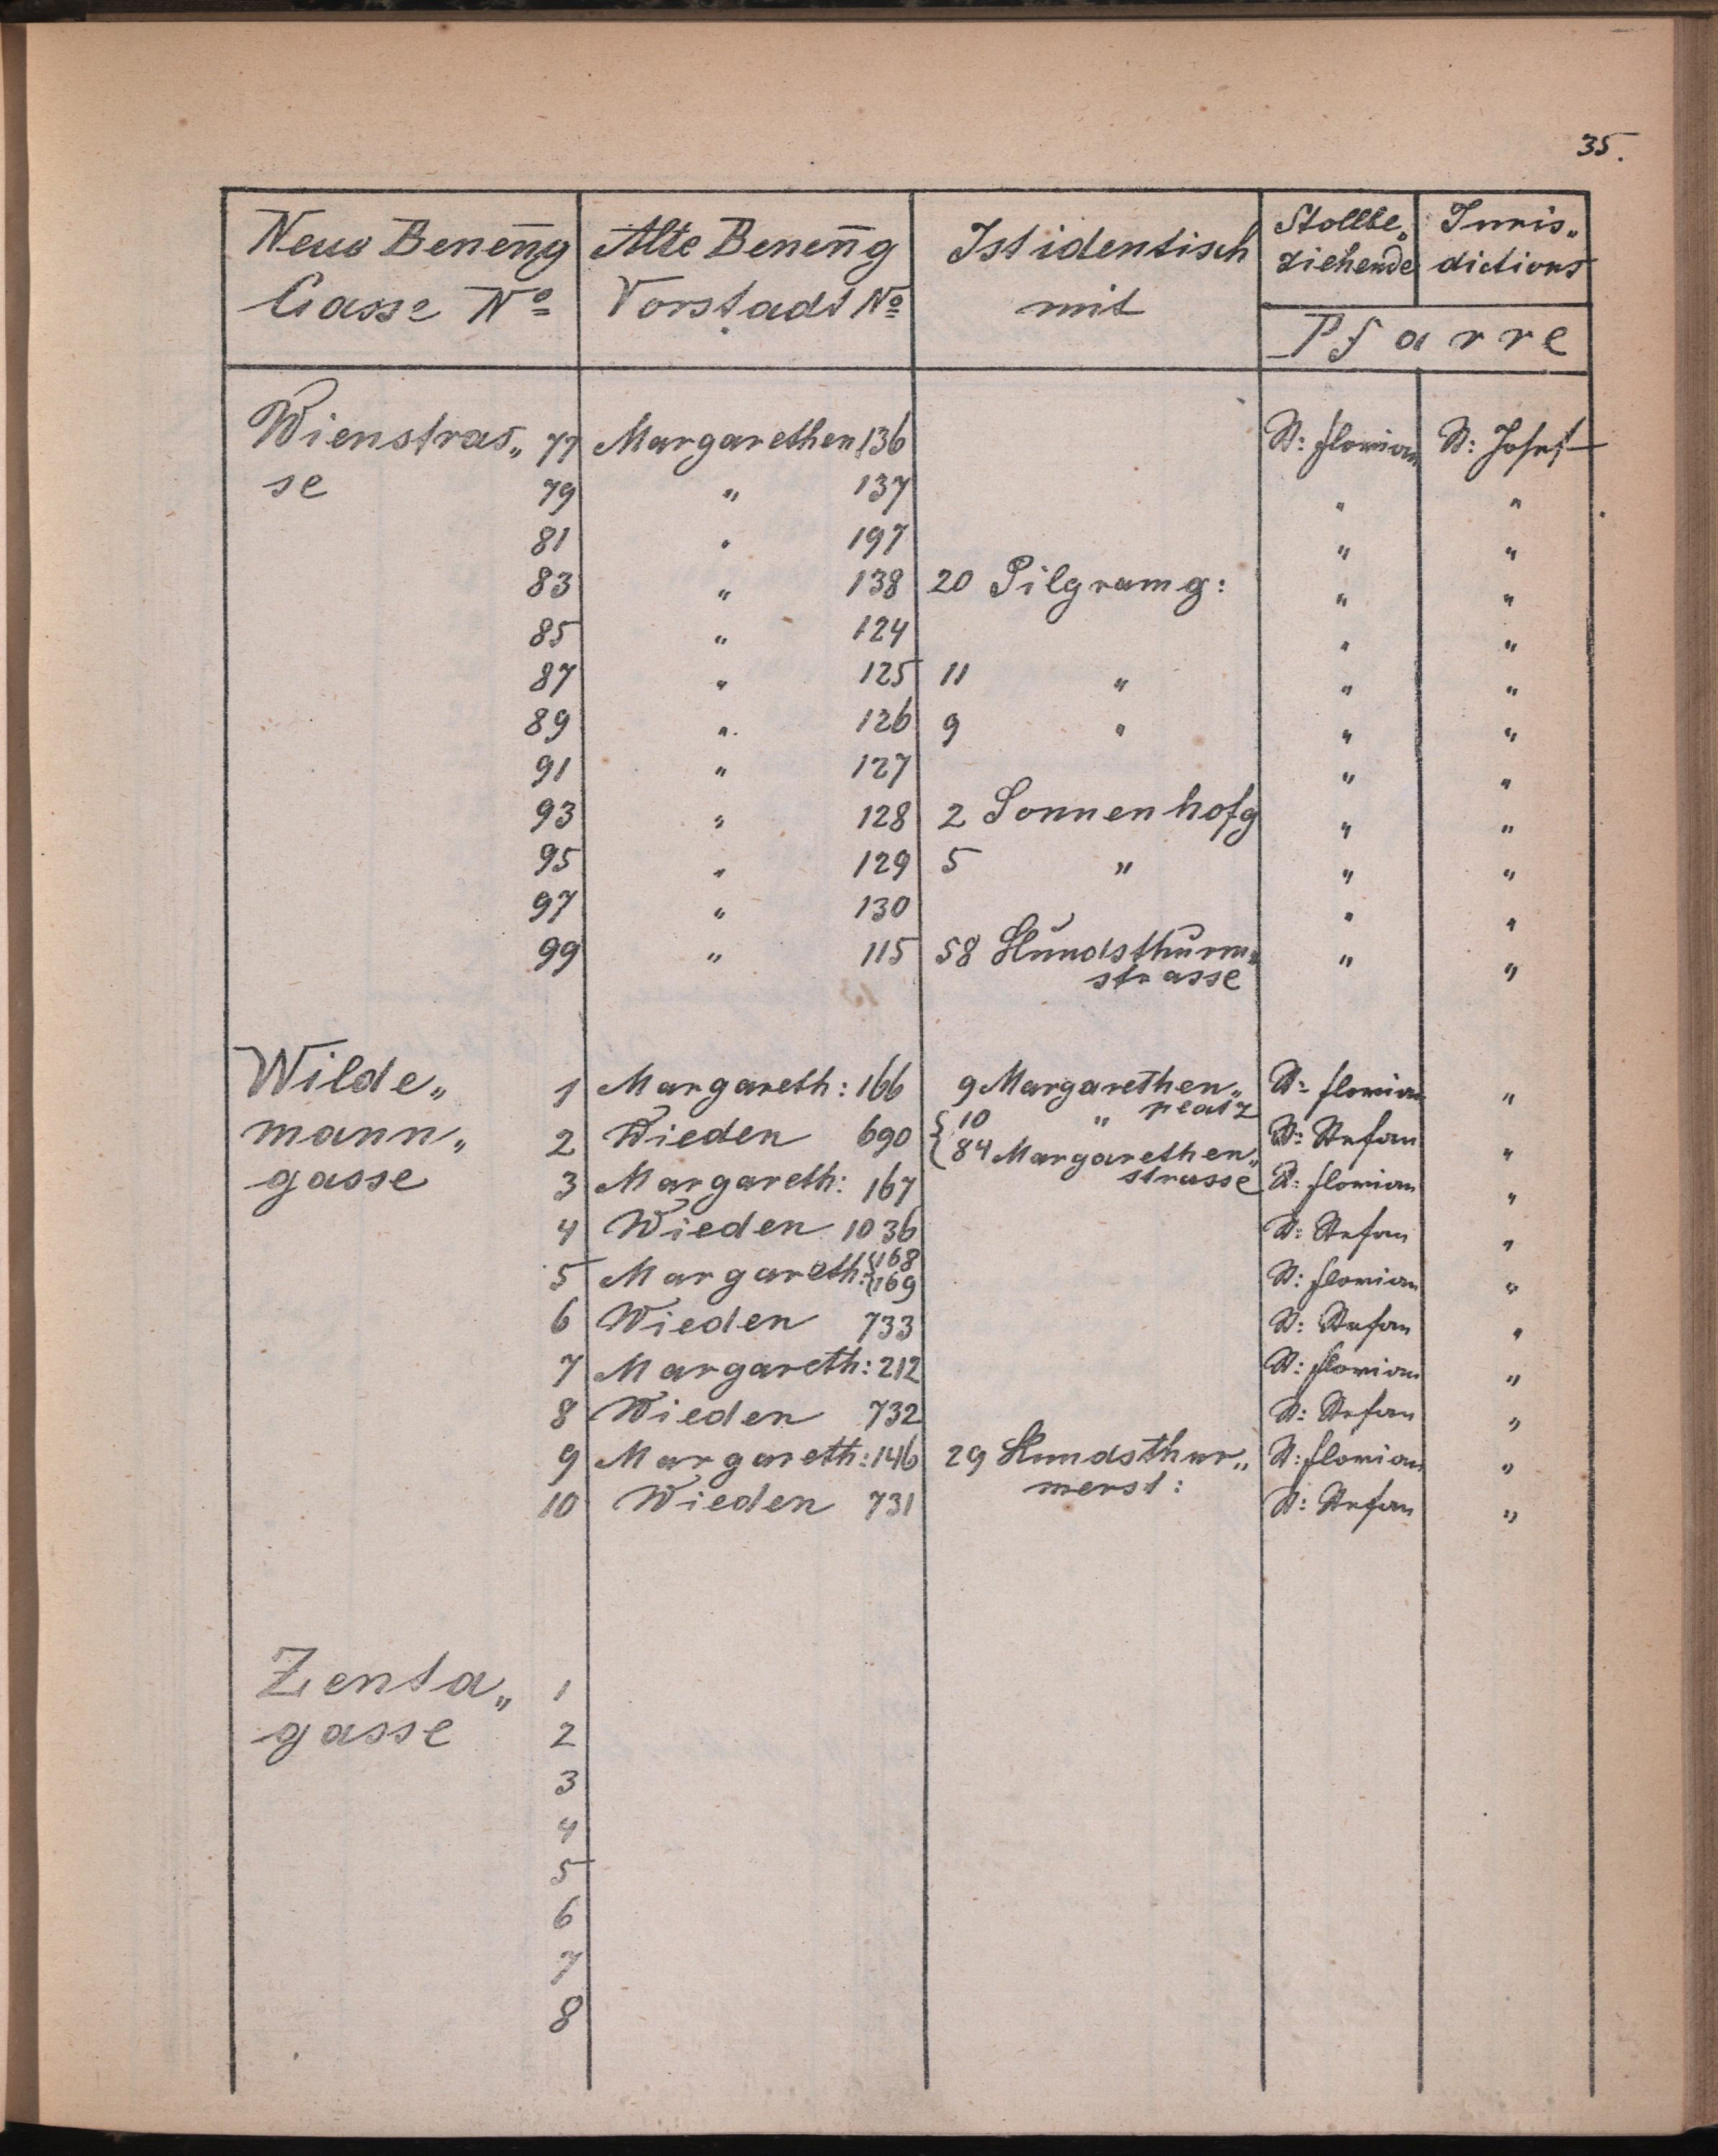 35.
Neue Benen̄g Alte Benen̄g Ist identisch Stollbe„ Juris„
ziehende dictions
Gasse No Vorstadt No mit
Pfarre
Wienstras„ 77 Margarethen 136 St: Florian St: Josef
se 79 „ 137 „ „
81 „ 197 „ „
83 „ 138 20 Pilgramg: „ „
85 „ 124 „ „
87 „ 125 11 „ „ „
89 „ 126 9 „ „ „
91 „ 127 „ „
93 „ 128 2 Sonnenhofg „ „
95 „ 129 5 „ „ „
97 „ 130 „ „
99 „ 115 58 Hundsthurm„ „ „
strasse
Wilde„ 1 Margareth: 166 9 Margarethen„ St: Florian „
platz
mann„ 2 Wieden 690 { 10 „ St: Stefan „
84 Margarethen„
strasse
gasse 3 Margareth: 167 St: Florian „
4 Wieden 1036 St: Stefan „
5 Margareth: {168 St: Florian „
169
6 Wieden 733 St: Stefan „
7 Margareth: 212 St: Florian „
8 Wieden 732 St: Stefan „
9 Margareth: 146 29 Hundsthur„ St: Florian „
merst:
10 Wieden 731 St: Stefan „
Zenta„ 1
gasse 2
3
4
5
6
7
8